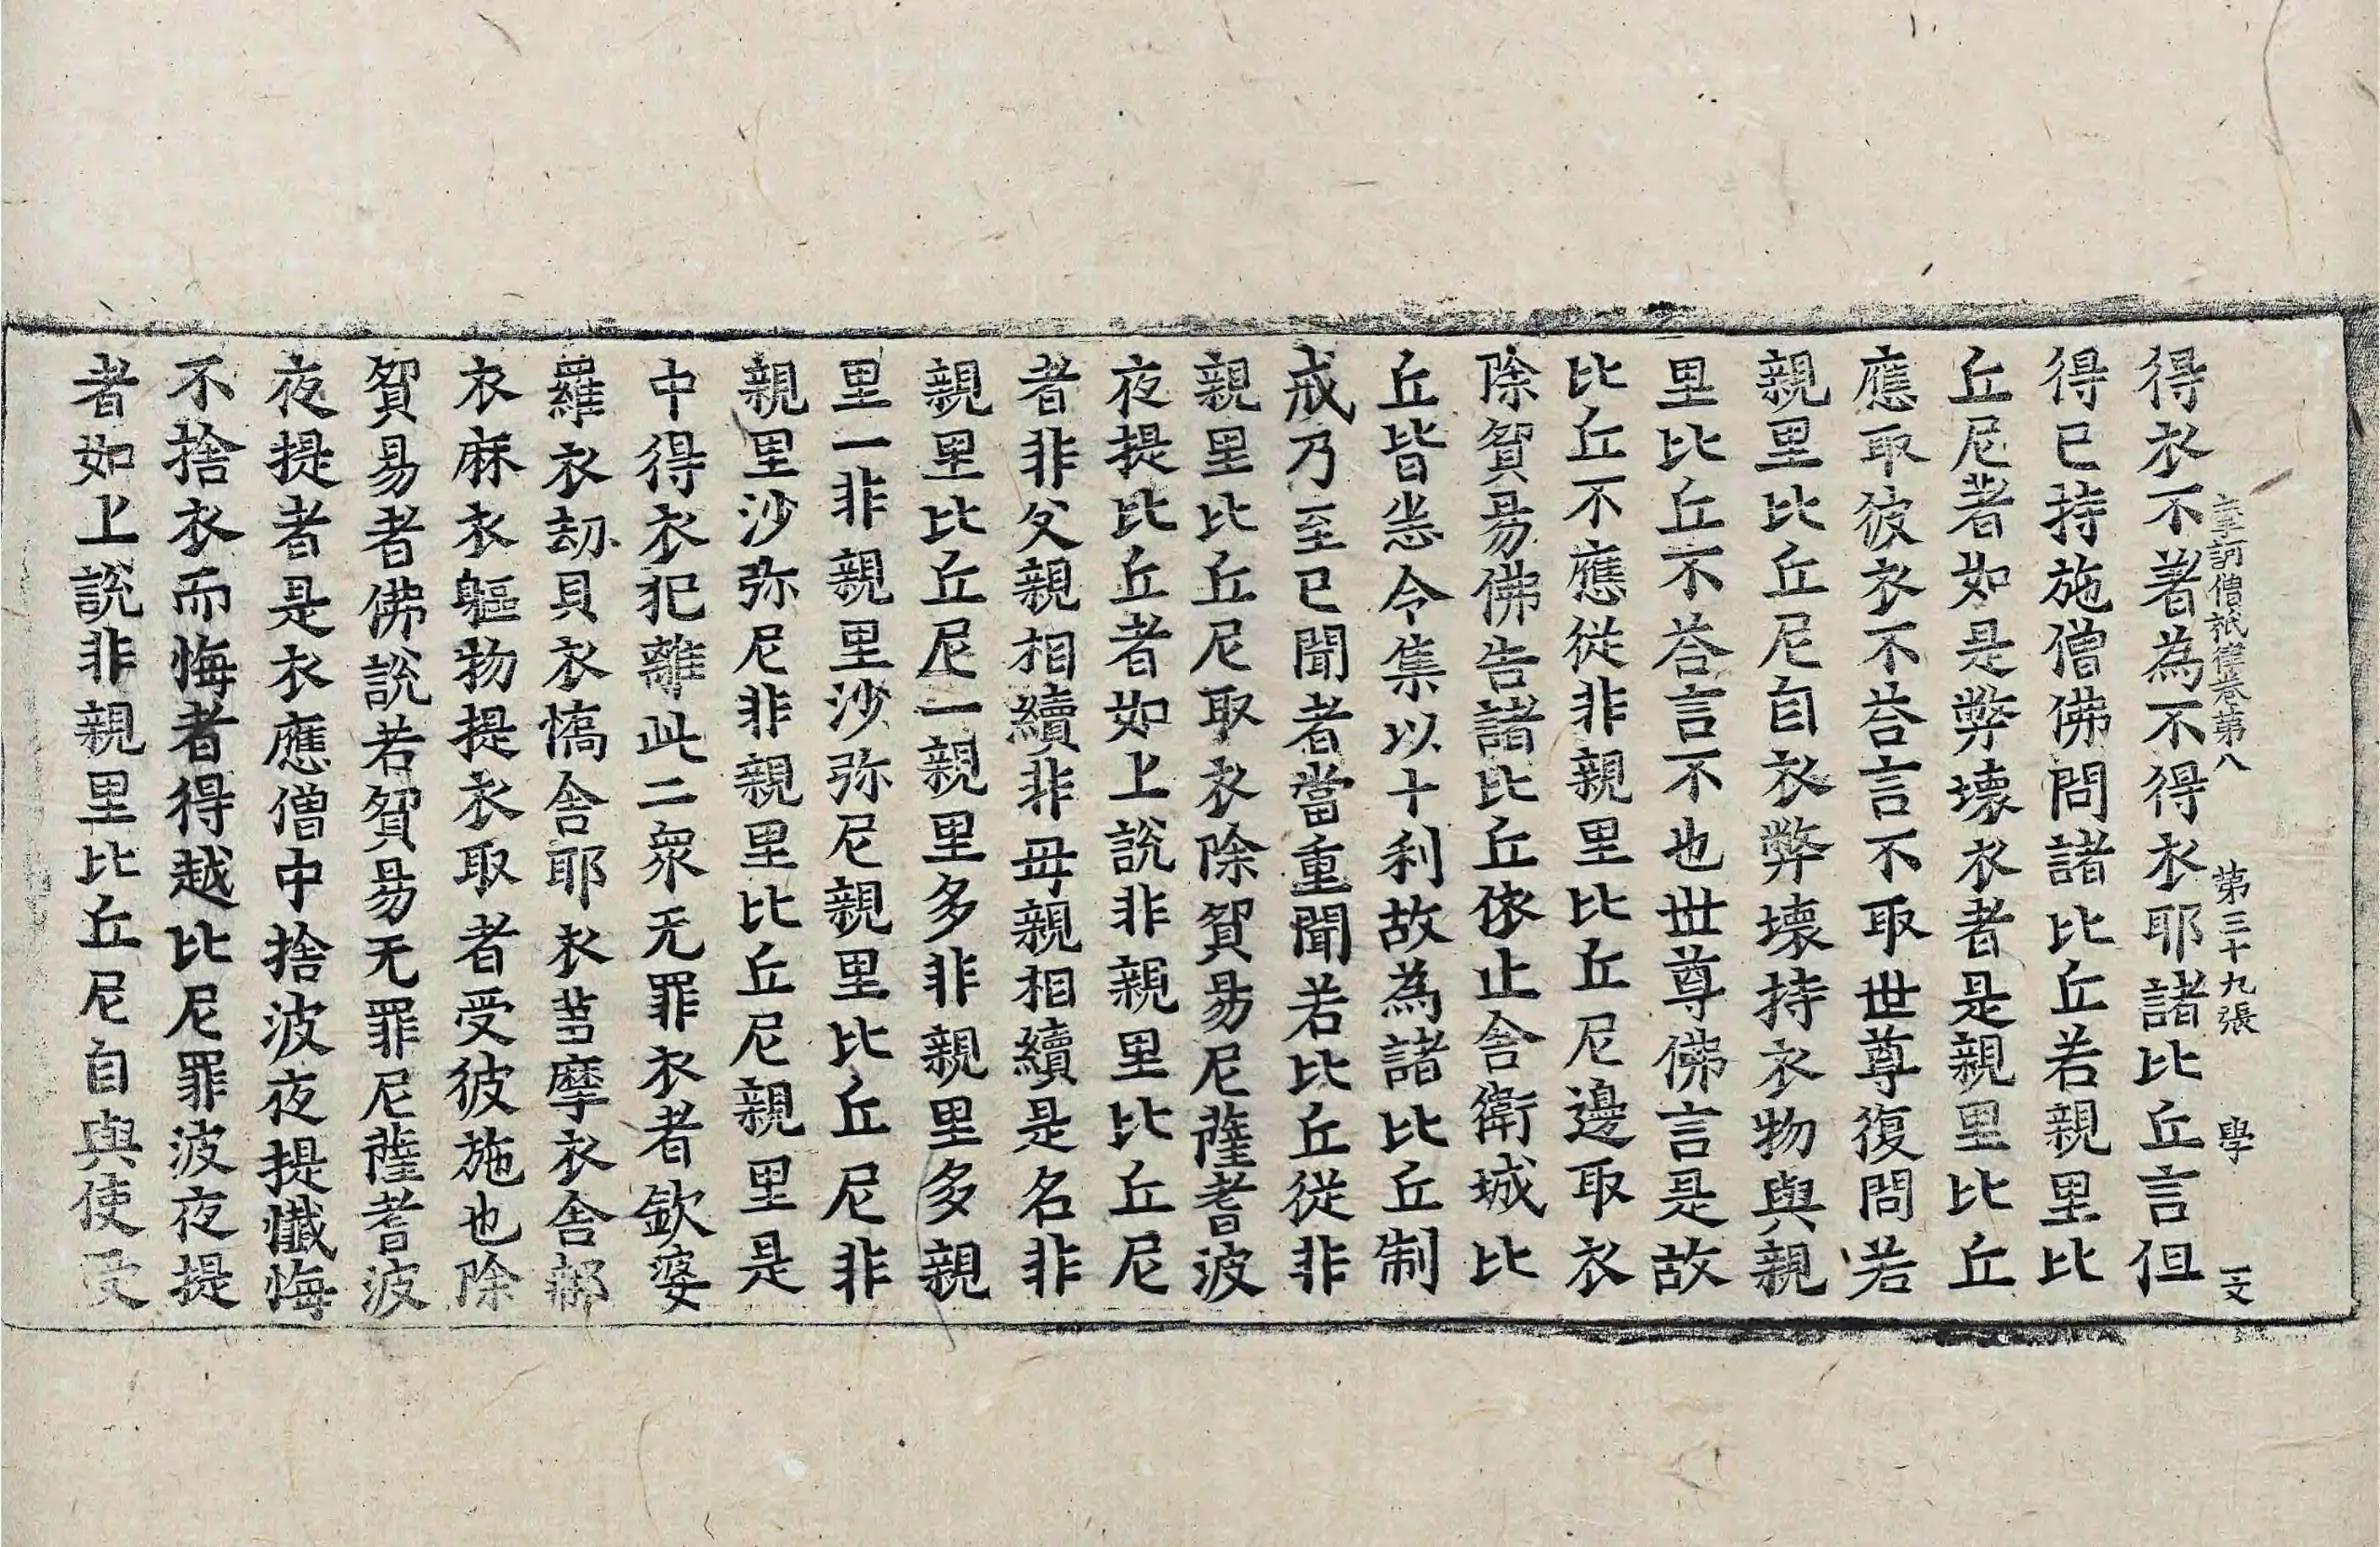 摩訶僧祇律卷第八 第三十九張 學 文
得衣不著為不得衣耶諸比丘言但
得已持施僧佛問諸比丘若親里比
丘尼著如是弊壞衣者是親里比丘
應取彼衣不荅言不取世尊復問若
親里比丘尼自衣弊壞持衣物與親
里比丘不荅言不也世尊佛言是故
比丘不應從非親里比丘尼邊取衣
除貿易佛告諸比丘依止舍衛城比
丘皆悉令集以十利故為諸比丘制
戒乃至已聞者當重聞若比丘從非
親里比丘尼取衣除貿易尼薩耆波
夜提比丘者如上說非親里比丘尼
者非父親相續非母親相續是名非
親里比丘尼一親里多非親里多親
里一非親里沙弥尼親里比丘尼非
親里沙弥尼非親里比丘尼親里是
中得衣犯離此二眾无罪衣者欽婆
羅衣劫貝衣憍舍耶衣芻摩衣舍那
衣麻衣軀物提衣取者受彼施也除
貿易者佛說若貿易无罪尼薩耆波
夜提者是衣應僧中捨波夜提懺悔
不捨衣而悔者得越比尼罪波夜提
者如上說非親里比丘尼自與使受